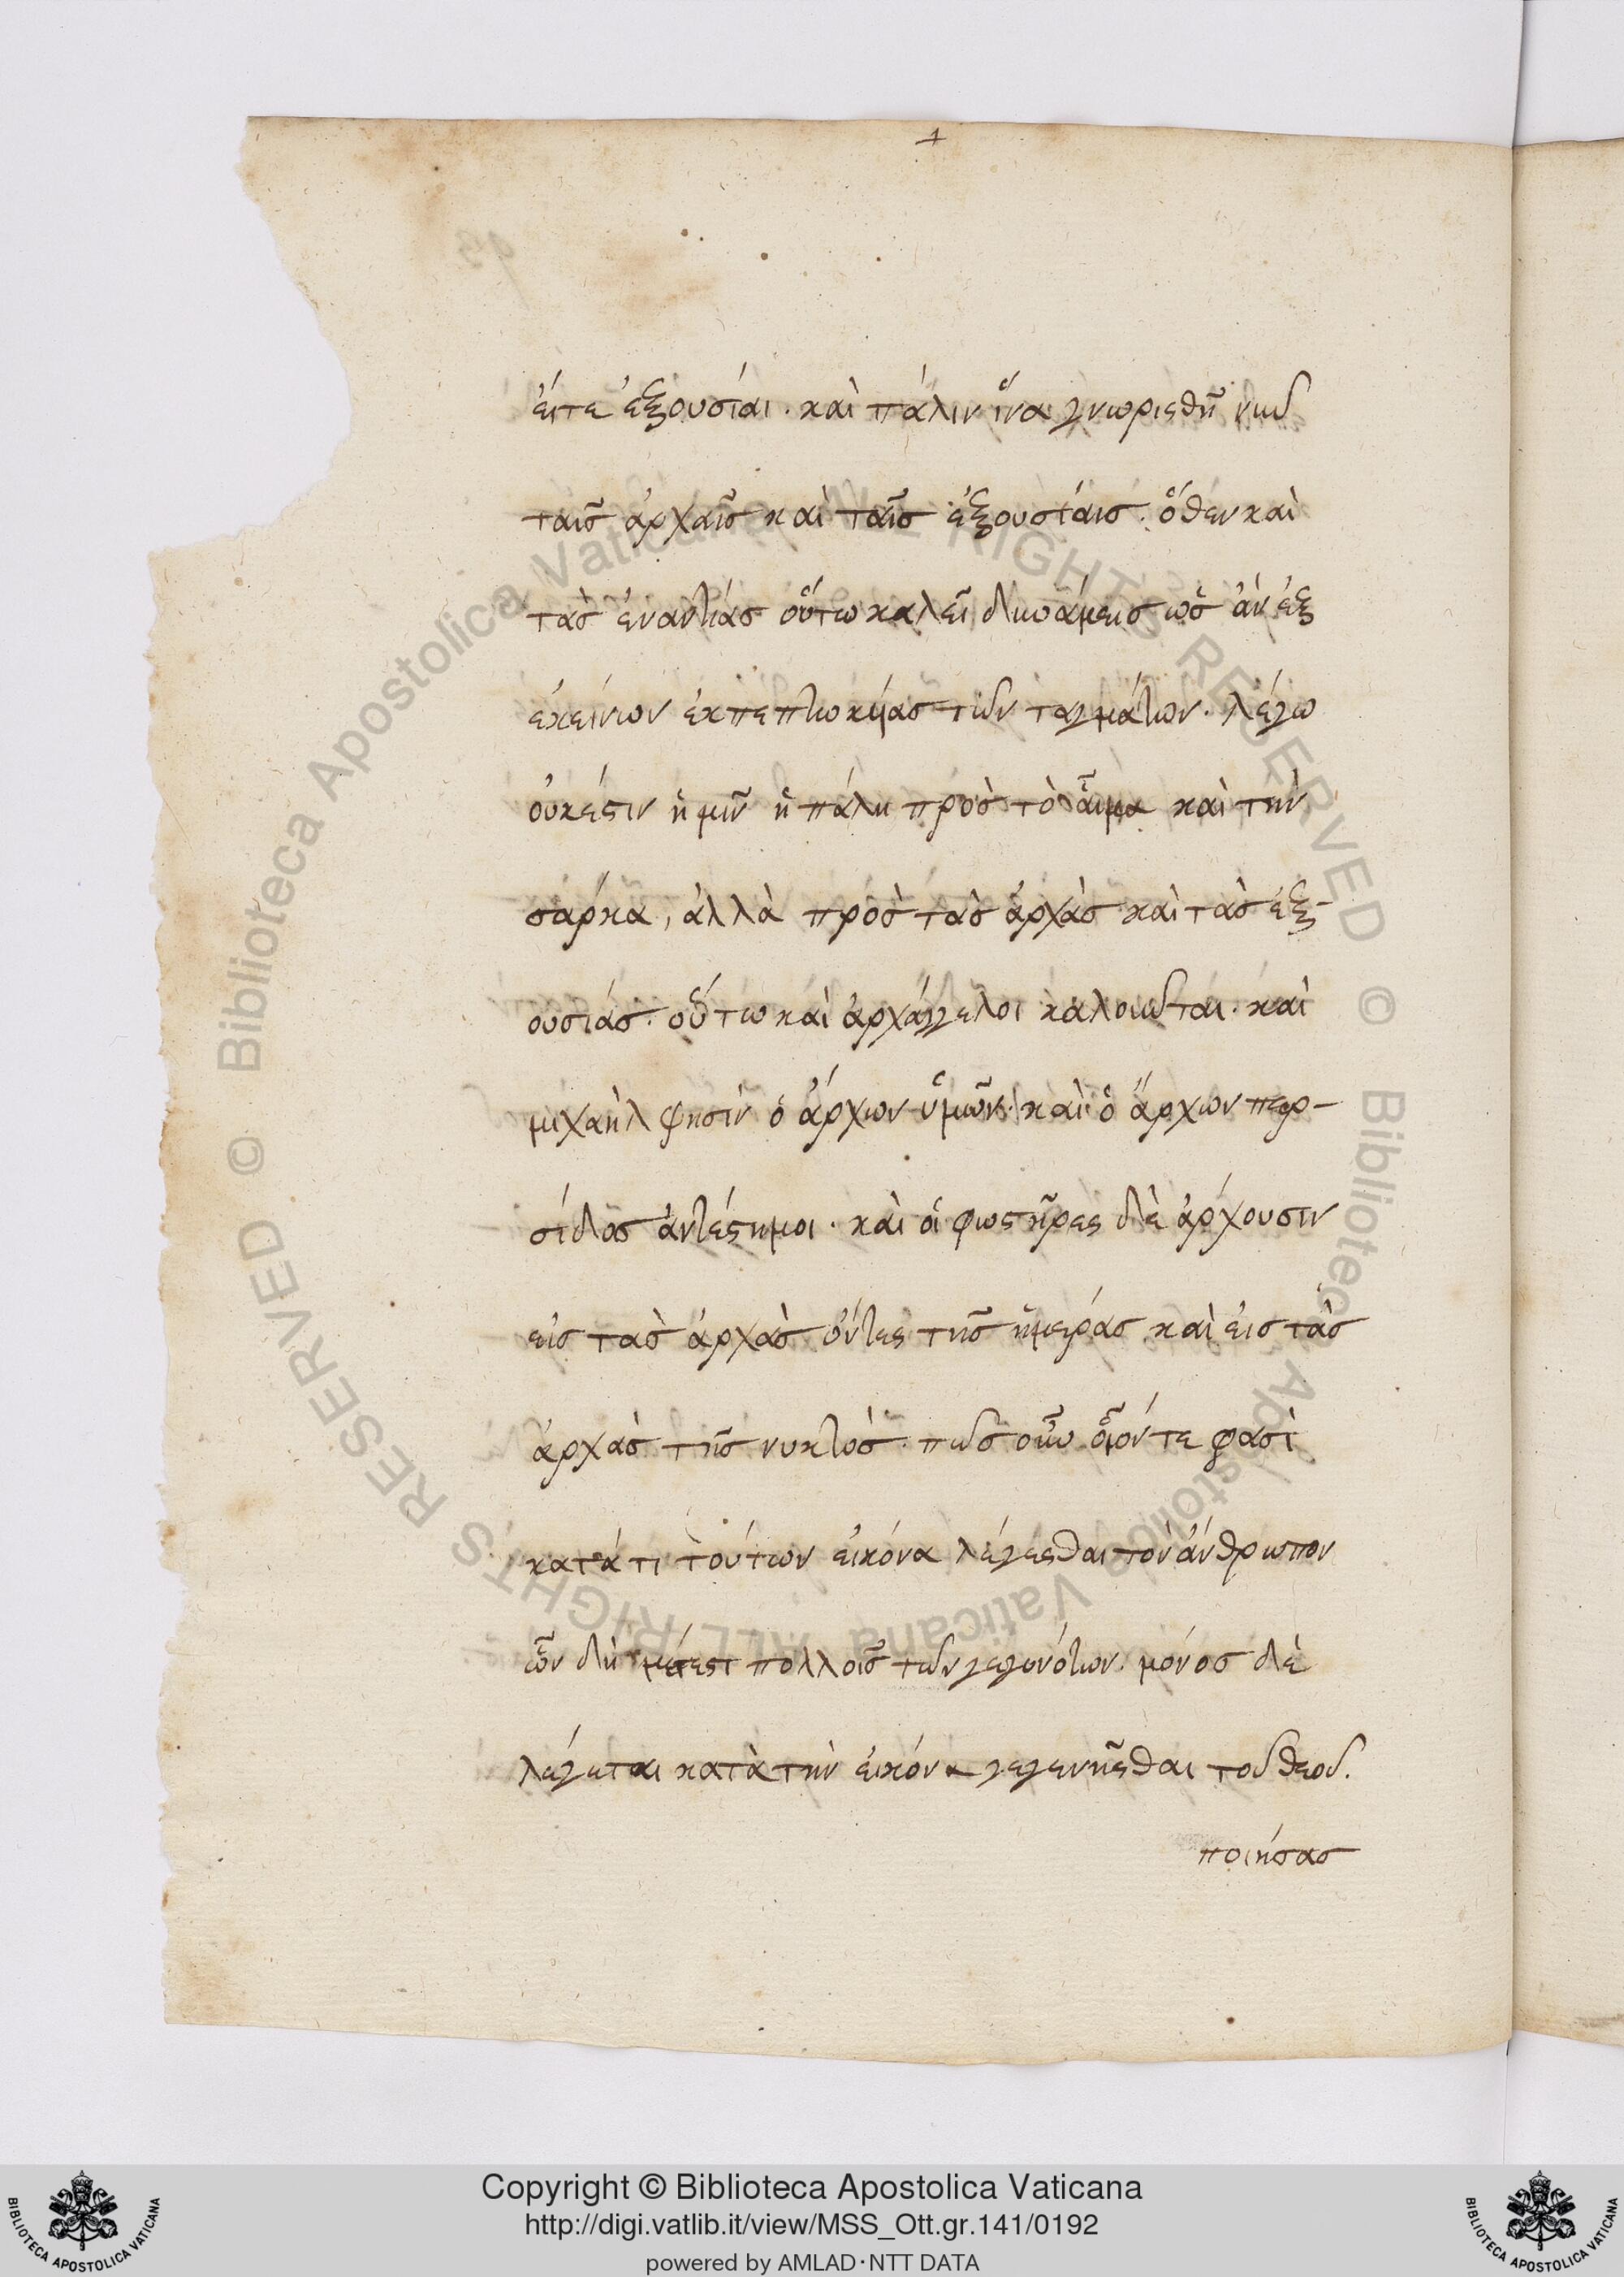 εἴτε ἐξουσίαι. καὶ πάλιν ἵνα γνωρισθῇ νῦν
ταῖς ἀρχαῖς καὶ ταῖς ἐξουσίαις. ὅθεν καὶ
τὰς ἐναντίας οὕτω καλεῖ δυνάμεις ὡς ἀν ἐξ
ἐκείνων ἐκπεπτωκυίας τῶν ταγμάτων. λέγω
οὐκέστιν ἡμῖν ἡ πάλη πρὸς τὸ αἷμα καὶ τὴν
σάρκα, ἀλλὰ πρὸς τὰς ἀρχὰς καὶ τὰς ἐξ-
ουσίας. οὕτω καὶ ἀρχάγγελοι καλοῦνται. καὶ
μιχαὴλ φησὶν ὁ ἄρχων ὑμῶν. καὶ ὁ ἄρχων περ-
σίδος ἀντέστη μοι. καὶ οἱ φωστῆρες δὲ ἄρχουσιν
εἰς τὰς ἀρχὰς ὄντες τῆς ἡμέρας καὶ εἰς τὰς
ἀρχὰς τῆς νυκτός. πῶς οὖν οἷόν τε φασὶ
κατά τι τούτων εἰκόνα λέγεσθαι τὸν ἄνθρωπον
ὧν δὴ μέτεστι πολλοῖς τῶν γεγονότων. μόνος δὲ
λέγεται κατὰ τὴν εἰκόνα γεγενῆσθαι τοῦ θεοῦ.
ποιήσας
Copyright © Biblioteca Apostolica Vaticana
http://digi.vatlib.it/view/MSS_Ott.gr.141/0192
powered by AMLAD·NTT DATA
BIBLIOTECA APOSTOLICA VATICANA
BIBLIOTECA APOSTOLICA VATICANA
© Biblioteca Apostolica Vaticana ALL RIGHTS RESERVED
© Biblioteca Apostolica Vaticana ALL RIGHTS RESERVED